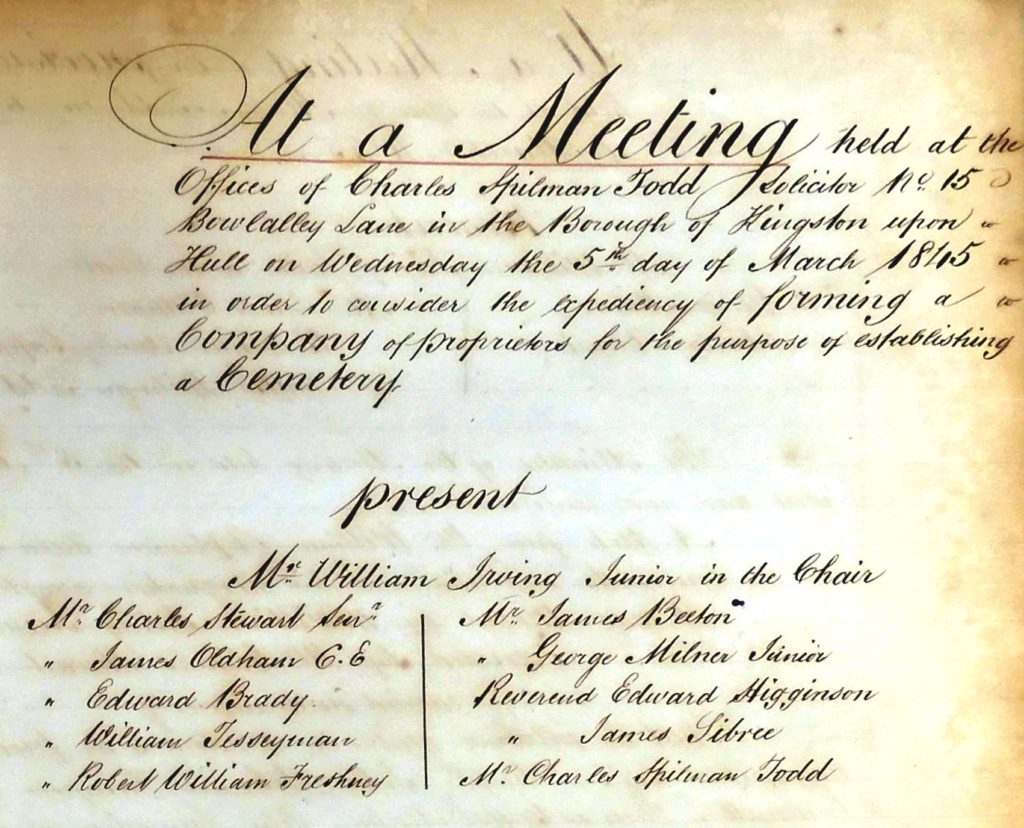 At a Meeting held at the
Offices of Charles Spilman Todd Solicitor No. 15
Bowlalley Lane in the Borough of Kingston upon
Hull on Wednesday the 5th day of March 1845
in order to consider the expediency of forming a
Company of proprietors for the purpose of establishing
a Cemetery
present
Mr. William Irving Junior in the Chair
Mr Charles Stewart Senr
" James Oldham C.E
" Edward Brady.
" William Tesseyman
" Robert William Freshney
Mr. James Beeton
" George Milner Junior
Reverend Edward Higginson
" James Sibree
Mr Charles Spilman Todd